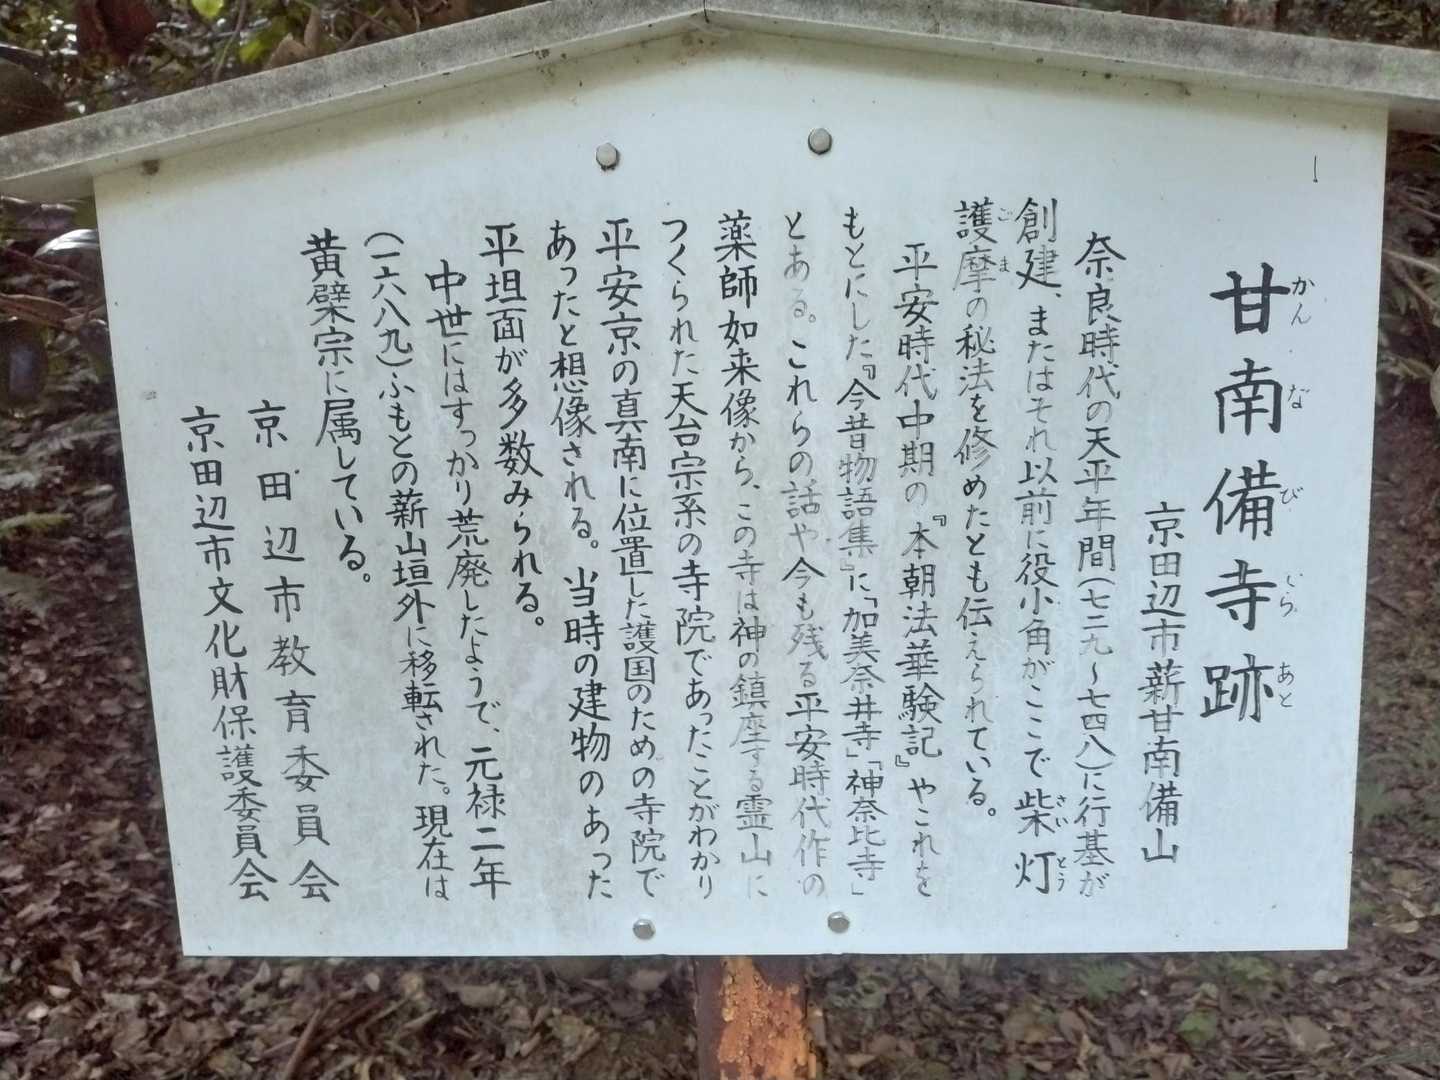 甘南備寺跡
かん な び じ あと
京田辺市薪甘南備山
奈良時代の天平年間(七二九〜七四八)に行基が
創建、またはそれ以前に役小角がここで柴灯
さい とう
護摩の秘法を修めたとも伝えられている。
ご ま
平安時代中期の『本朝法華験記』やこれを
もとにした『今昔物語集』に「加美奈井寺」「神奈比寺」
とある。これらの話や今も残る平安時代作の
薬師如来像から、この寺は神の鎮座する霊山に
つくられた天台宗系の寺院であったことがわかり
平安京の真南に位置した護国のための寺院で
あったと想像される。当時の建物のあった
平坦面が多数みられる。
中世にはすっかり荒廃したようで、元禄二年
(一六八九)ふもとの薪山垣外に移転された。現在は
黄檗宗に属している。
京田辺市教育委員会
京田辺市文化財保護委員会